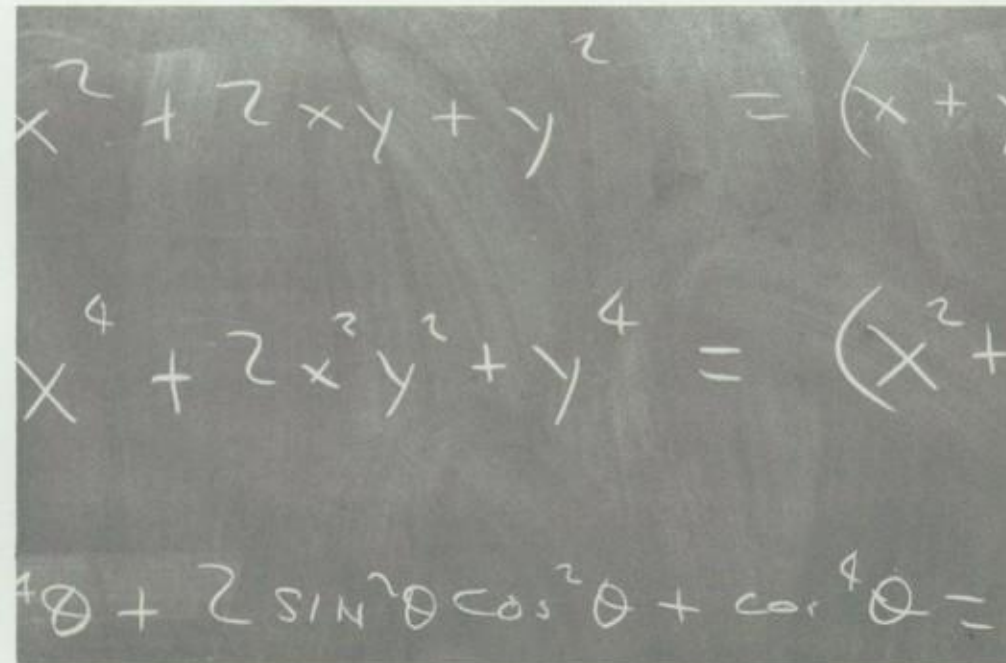 x² + 2xy + y² = (x + y
x⁴ + 2x²y² + y⁴ = (x² +
⁴θ + 2 SIN²θ cos²θ + cos⁴θ =